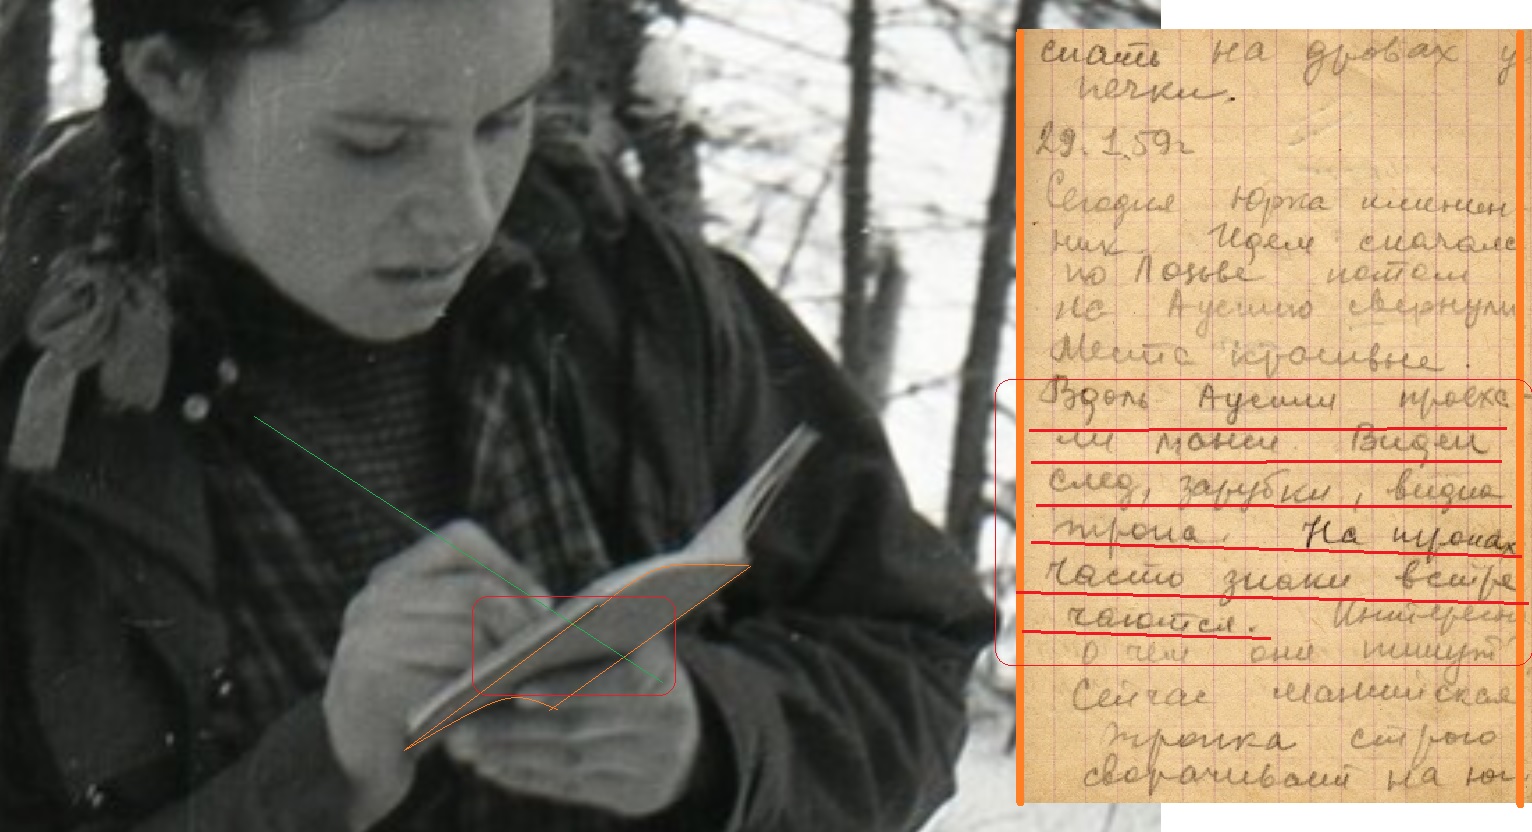 спать на дровах у
печки.
29.1.59г
Сегодня Юрка именин-
ник. Идем сначала
по Лозьве потом
на Ауспию свернули
Места красивые.
Вдоль Ауспии проеха-
ли манси. Виден
след, зарубки, видна
тропа. На тропах
часто знаки встре
чаются. Интересн
о чем они пишут
Сейчас мансийская
тропка строго
сворачивает на юг